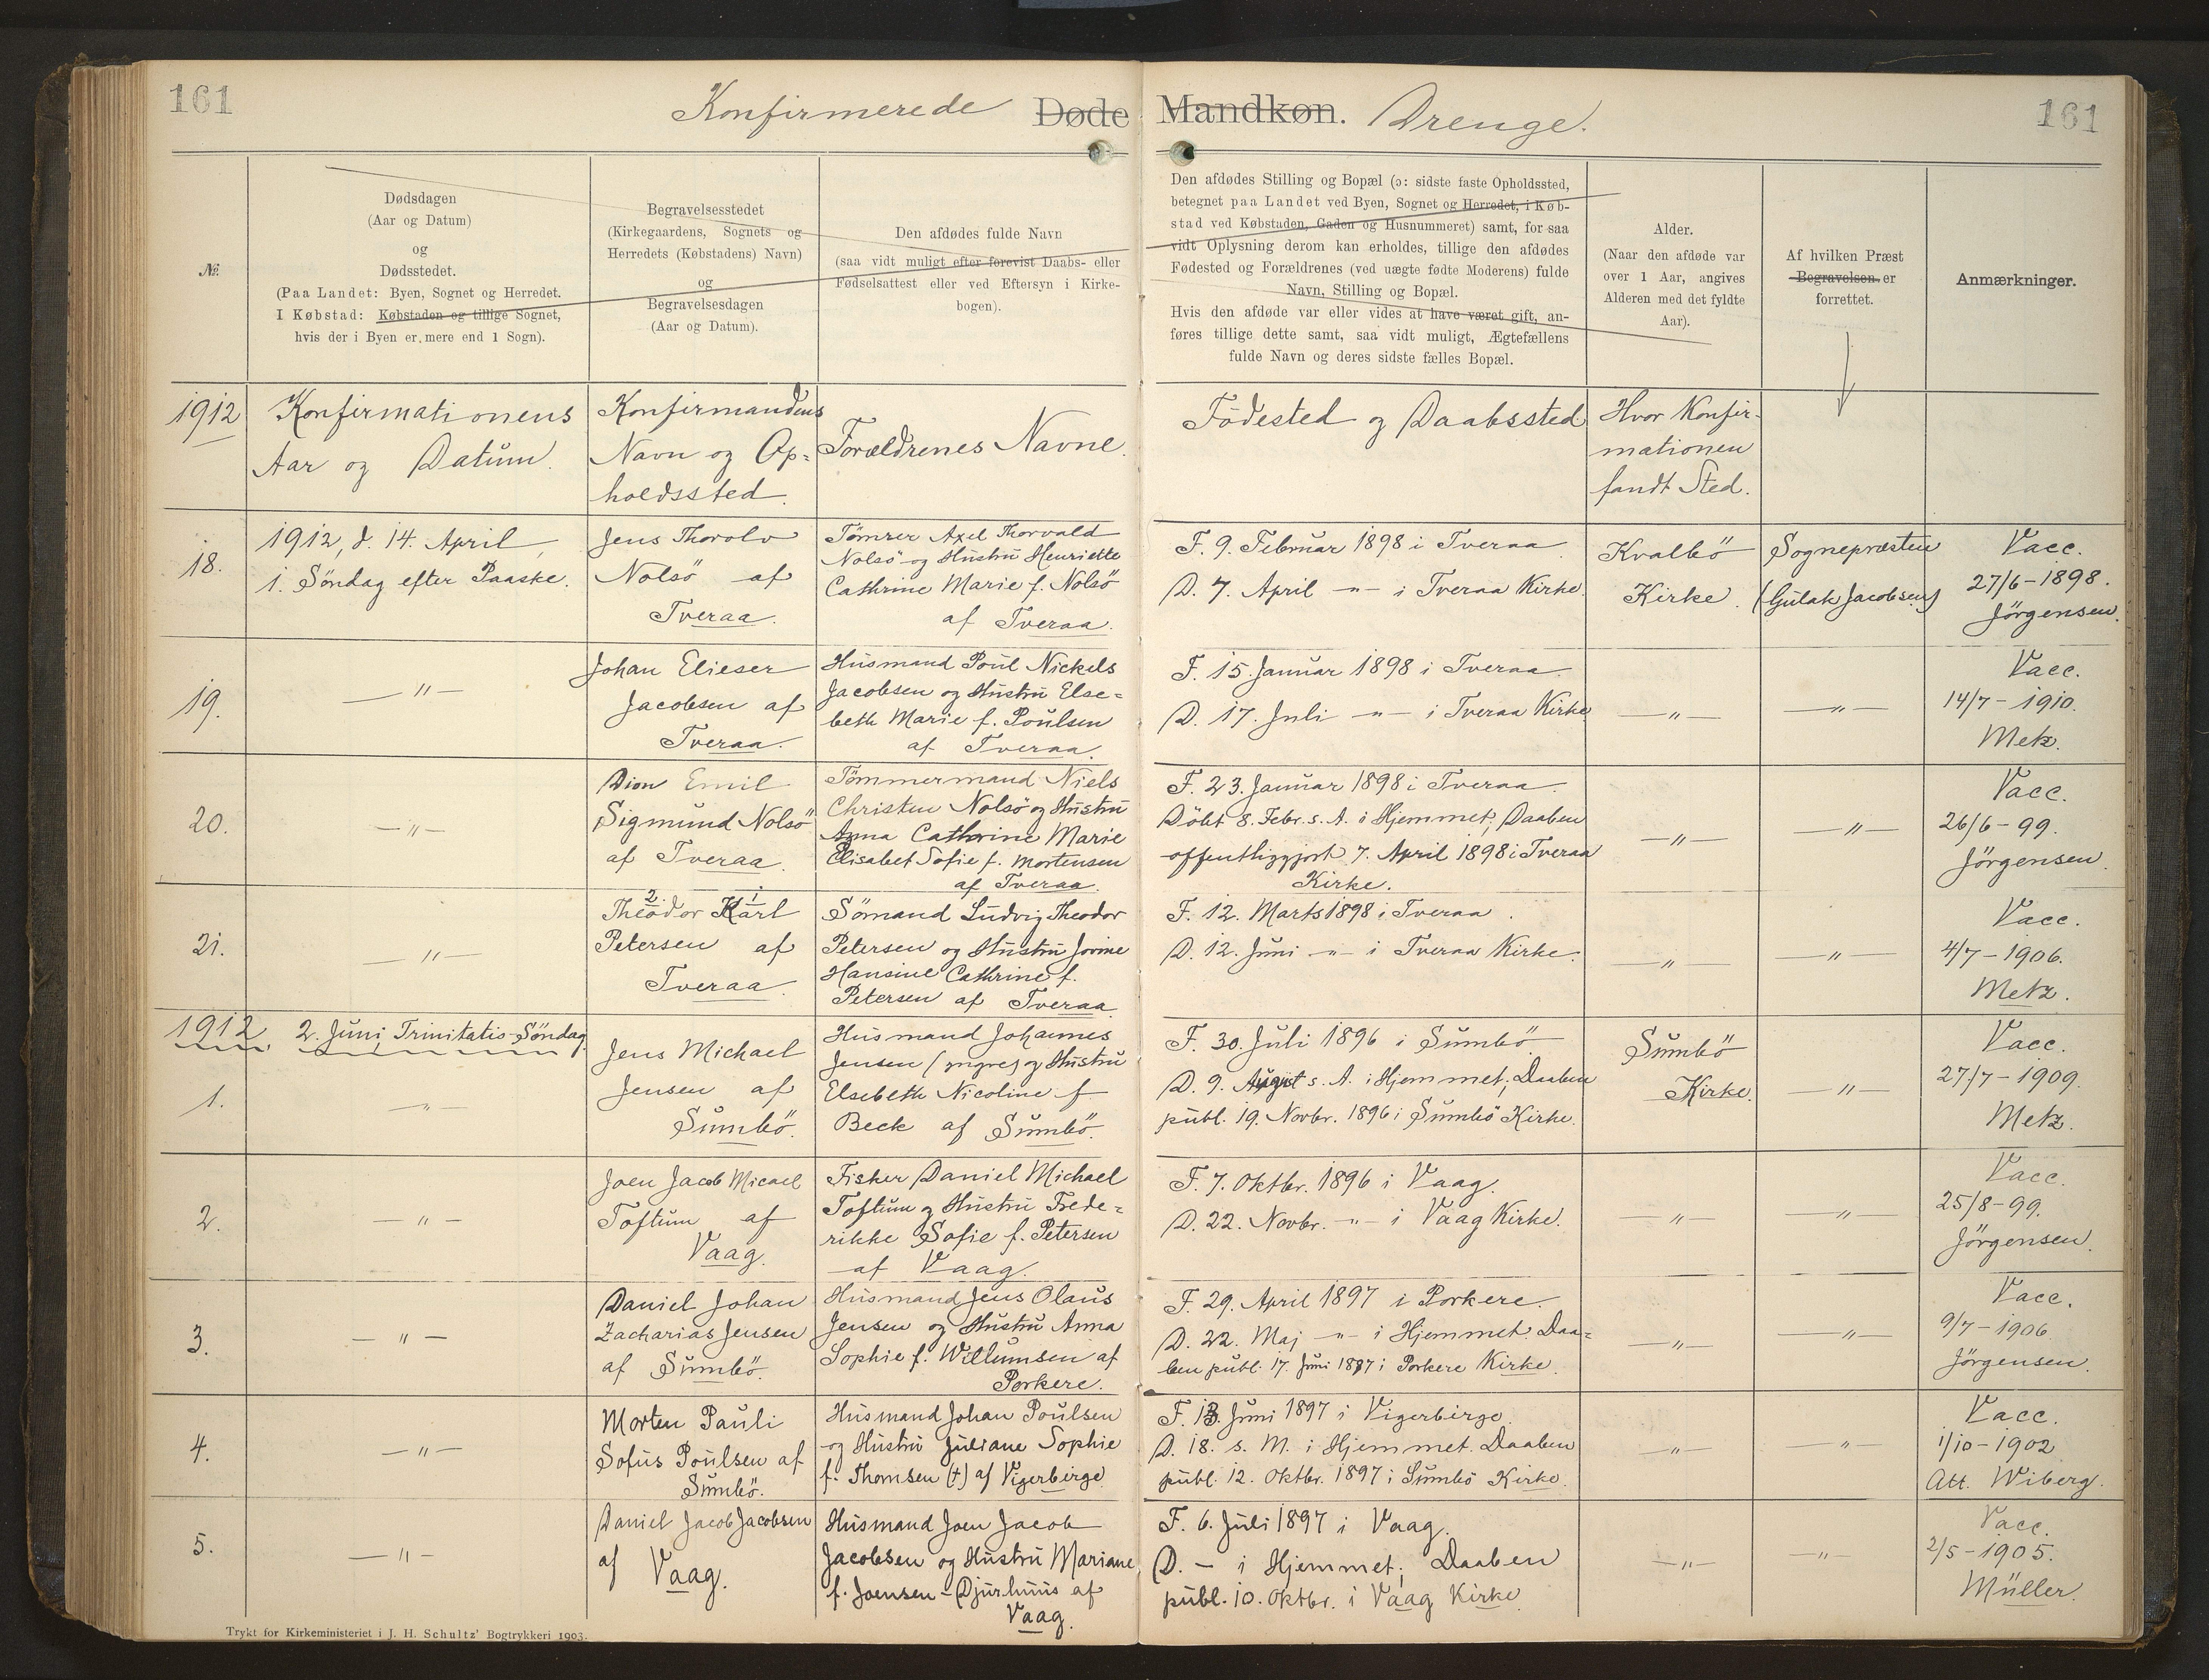 161
Konfirmerede Døde Mandkøn. Drenge.
161
№
Dødsdagen
(Aar og Datum)
og
Dødsstedet.
(Paa Landet: Byen, Sognet og Herredet.
I Købstad: Købstaden og tillige Sognet,
hvis der i Byen er mere end 1 Sogn).
Begravelsesstedet
(Kirkegaardens, Sognets og
Herredets (Købstadens) Navn)
og
Begravelsesdagen
(Aar og Datum).
Den afdødes fulde Navn
(saa vidt muligt efter forevist Daabs- eller
Fødselsattest eller ved Eftersyn i Kirke-
bogen).
Den afdødes Stilling og Bopæl (ɔ: sidste faste Opholdssted,
betegnet paa Landet ved Byen, Sognet og Herredet, i Køb-
stad ved Købstaden, Gaden og Husnummeret) samt, for saa
vidt Oplysning derom kan erholdes, tillige den afdødes
Fødested og Forældrenes (ved uægte fødte Moderens) fulde
Navn, Stilling og Bopæl.
Hvis den afdøde var eller vides at have været gift, an-
føres tillige dette samt, saa vidt muligt, Ægtefællens
fulde Navn og deres sidste fælles Bopæl.
Alder.
(Naar den afdøde var
over 1 Aar, angives
Alderen med det fyldte
Aar).
Af hvilken Præst
Begravelsen er
forrettet.
Anmærkninger.
1912
Konfirmationens
Aar og Datum.
Konfirmandens
Navn og Op=
holdssted.
Forældrenes Navne.
Födested og Daabssted
Hvor Konfir-
mationen
fandt Sted.
18.
1912, d. 14. April,
1. Söndag efter Paaske.
Jens Thorolv
Nolsö af
Tveraa.
Tömrer Axel Thorvald
Nolsö og Hustru Henriette
Cathrine Marie f. Nolsö
af Tveraa.
F. 9. Februar 1898 i Tveraa.
D. 7. April -"- i Tveraa Kirke.
Kvalbö
Kirke.
Sognepræsten
(Gulak Jacobsen)
Vacc.
27/6-1898.
Jörgensen.
19.
-"-
Johan Elieser
Jacobsen af
Tveraa.
Husmand Poul Nickels
Jacobsen og Hustru Else=
beth Marie f. Poulsen
af Tveraa.
F. 15. Januar 1898 i Tveraa.
D. 17. Juli -"- i Tveraa Kirke
-"-
-"-
Vacc.
14/7-1910.
Metz.
20.
-"-
Dion Emil
Sigmund Nolsö
af Tveraa.
Tömmermand Niels
Christen Nolsö og Hustru
Anna Cathrine Marie
Elisabet Sofie f. Mortensen
af Tveraa.
F. 23. Januar 1898 i Tveraa.
Döbt 8. Febr. s. A. i Hjemmet; Daaben
offentliggjort 7. April 1898 i Tveraa
Kirke.
-"-
-"-
Vacc.
26/6-99.
Jörgensen.
21.
-"-
2 1
Theodor Karl
Petersen af
Tveraa.
Sömand Ludvig Theodor
Petersen og Hustru Jovine
Hansine Cathrine f.
Petersen af Tveraa.
F. 12. Marts 1898 i Tveraa.
D. 12. Juni -"- i Tveraa Kirke.
-"-
-"-
Vacc.
4/7-1906.
Metz.
1912.
1.
2. Juni, Trinitatis-Söndag.
-"-
Jens Michael
Jensen af
Sumbö.
Husmand Johannes
Jensen (yngre) og Hustru
Elsebeth Nicoline f
Beck af Sumbö.
F. 30. Juli 1896 i Sumbö
D. 9. August s. A. i Hjemmet; Daaben
publ. 19. Novbr. 1896 i Sumbö Kirke.
Sumbö
Kirke.
-"-
Vacc.
27/7-1909.
Metz.
2.
-"-
Joen Jacob Micael
Toftum af
Vaag.
Fisker Daniel Michael
Toftum og Hustru Frede=
rikke Sofie f. Petersen
af Vaag.
F. 7. Oktbr. 1896 i Vaag.
D. 22. Novbr. -"- i Vaag Kirke.
-"-
-"-
Vacc.
25/8-99.
Jörgensen.
3.
-"-
Daniel Johan
Zacharias Jensen
af Sumbö.
Husmand Jens Olaus
Jensen og Hustru Anna
Sophie f. Willumsen af
Porkere.
F. 29. April 1897 i Porkere.
D. 22. Maj -"- i Hjemmet. Daa=
ben publ. 17. Juni 1897 i Porkere Kirke.
-"-
-"-
Vacc.
9/7-1906.
Jörgensen.
4.
-"-
Morten Pauli
Sofus Poulsen af
Sumbö.
Husmand Johan Poulsen
og Hustru Juliane Sophie
f. Thomsen (†) af Vigerbirge
F. 13. Juni 1897 i Vigerbirge.
D. 18. s. M. i Hjemmet. Daaben
publ. 12. Oktbr. 1897 i Sumbö Kirke.
-"-
-"-
Vacc.
1/10-1902
Att. Wiberg.
5.
-"-
Daniel Jacob Jacobsen
af Vaag.
Husmand Joen Jacob
Jacobsen og Hustru Mariane
f. Joensen-Djurhuus af
Vaag.
F. 6. Juli 1897 i Vaag.
D. - i Hjemmet; Daaben
publ. 10. Oktbr. i Vaag Kirke
-"-
-"-
Vacc.
2/5-1905.
Müller.
Trykt for Kirkeministeriet i J. H. Schultz' Bogtrykkeri 1903.